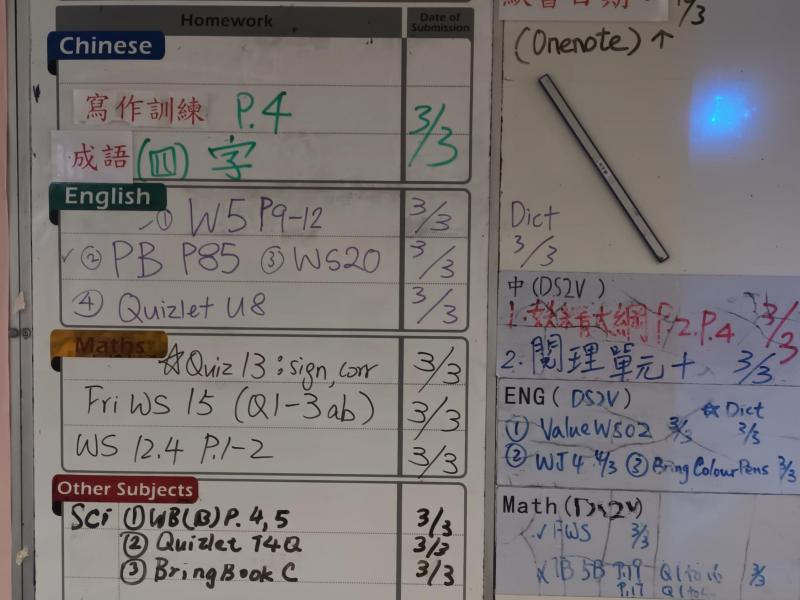 Homework Date of Submission
Chinese
寫作訓練 P.4 3/3
成語 (四) 字
English
① W5 P9-12 3/3
② PB P85 ③ WS20 3/3
④ Quizlet U8 3/3
Maths
☆Quiz 13 : sign, corr 3/3
Fri WS 15 (Q1-3ab) 3/3
WS 12.4 P.1-2 3/3
Other Subjects
Sci ① WB(B) P. 4, 5 3/3
② Quizlet T4Q 3/3
③ Bring Book C 3/3
(Onenote) ↑
Dict
3/3
中 (DS2V)
1. 大綱 P.4 3/3
2. 閱理單元十 3/3
ENG ( DS2V)
☆ Dict
① Value WS02 3/3 3/3
② WJ4 4/3 ③ Bring Colour Pens 3/3
Math (DS2V)
WS 3/3
5B P.19 Q1 to 16 3/3
P.17 Q1 to